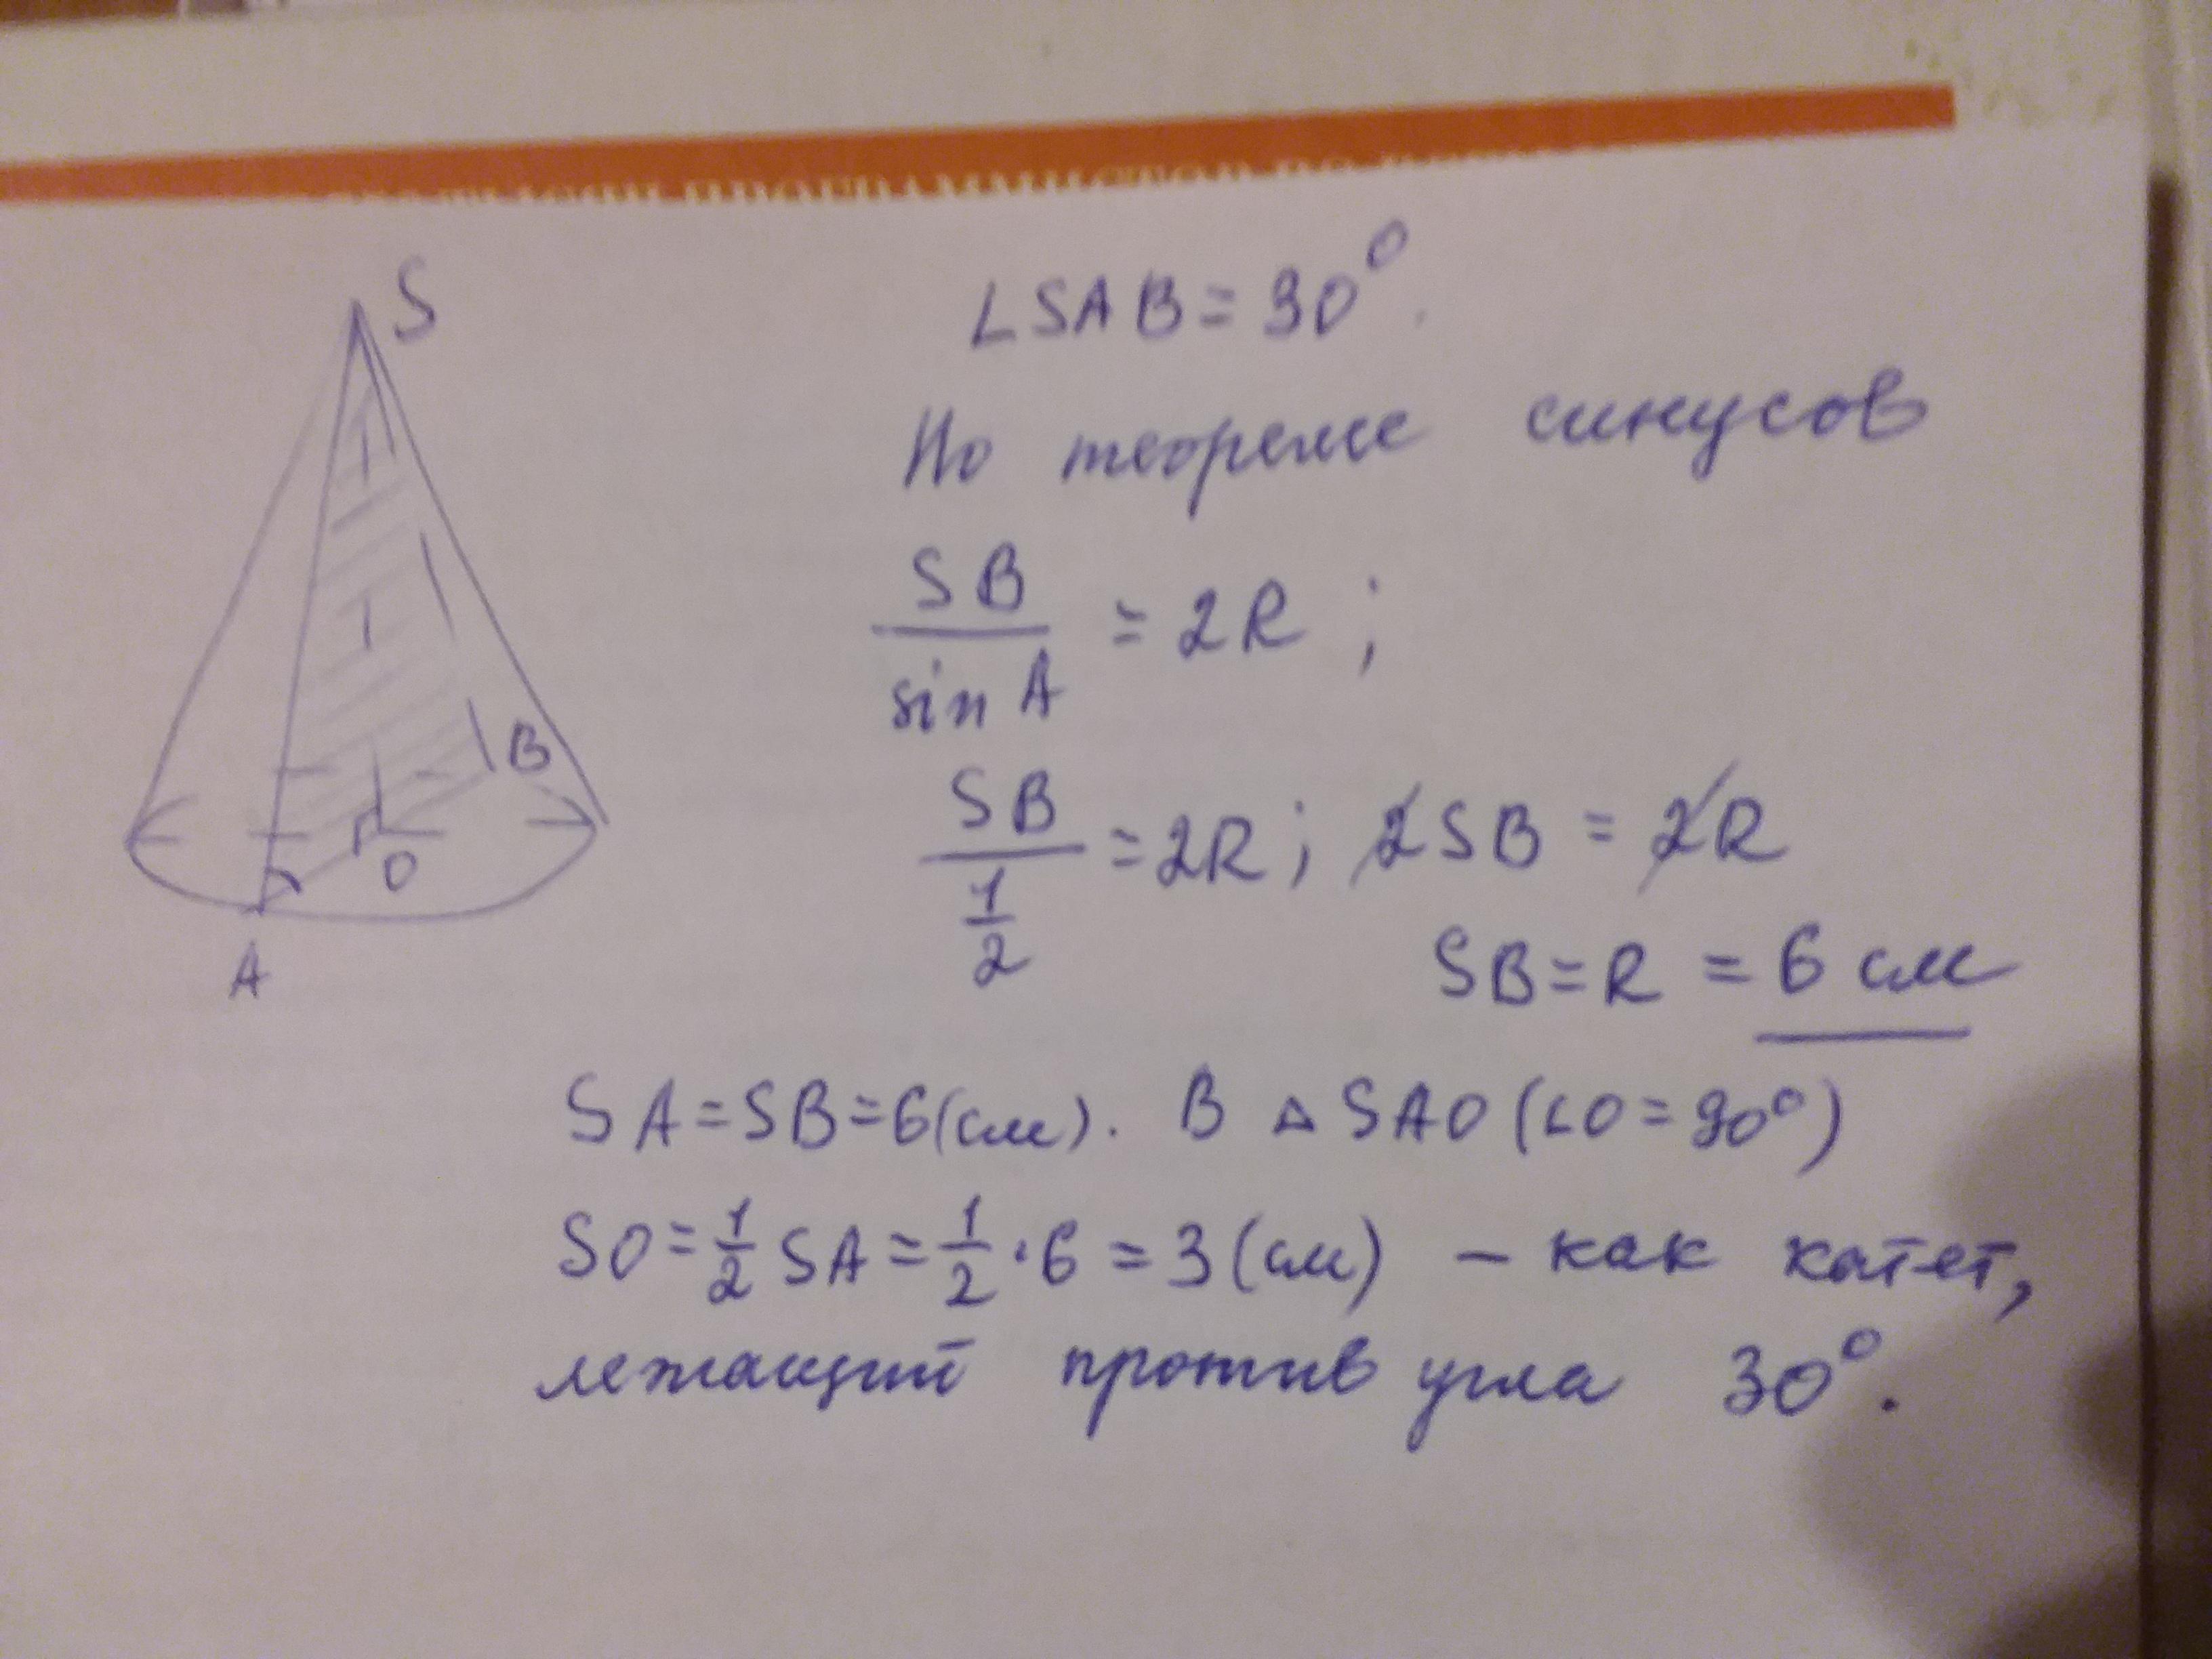 S
B
O
A
∠SAB = 30°.
По теореме синусов
SB/sin A = 2R ;
SB/(1/2) = 2R ; 2SB = 2R
SB = R = 6 см
SA = SB = 6(см). В △ SAO (∠O = 90°)
SO = 1/2 SA = 1/2 · 6 = 3 (см) – как катет,
лежащий против угла 30°.